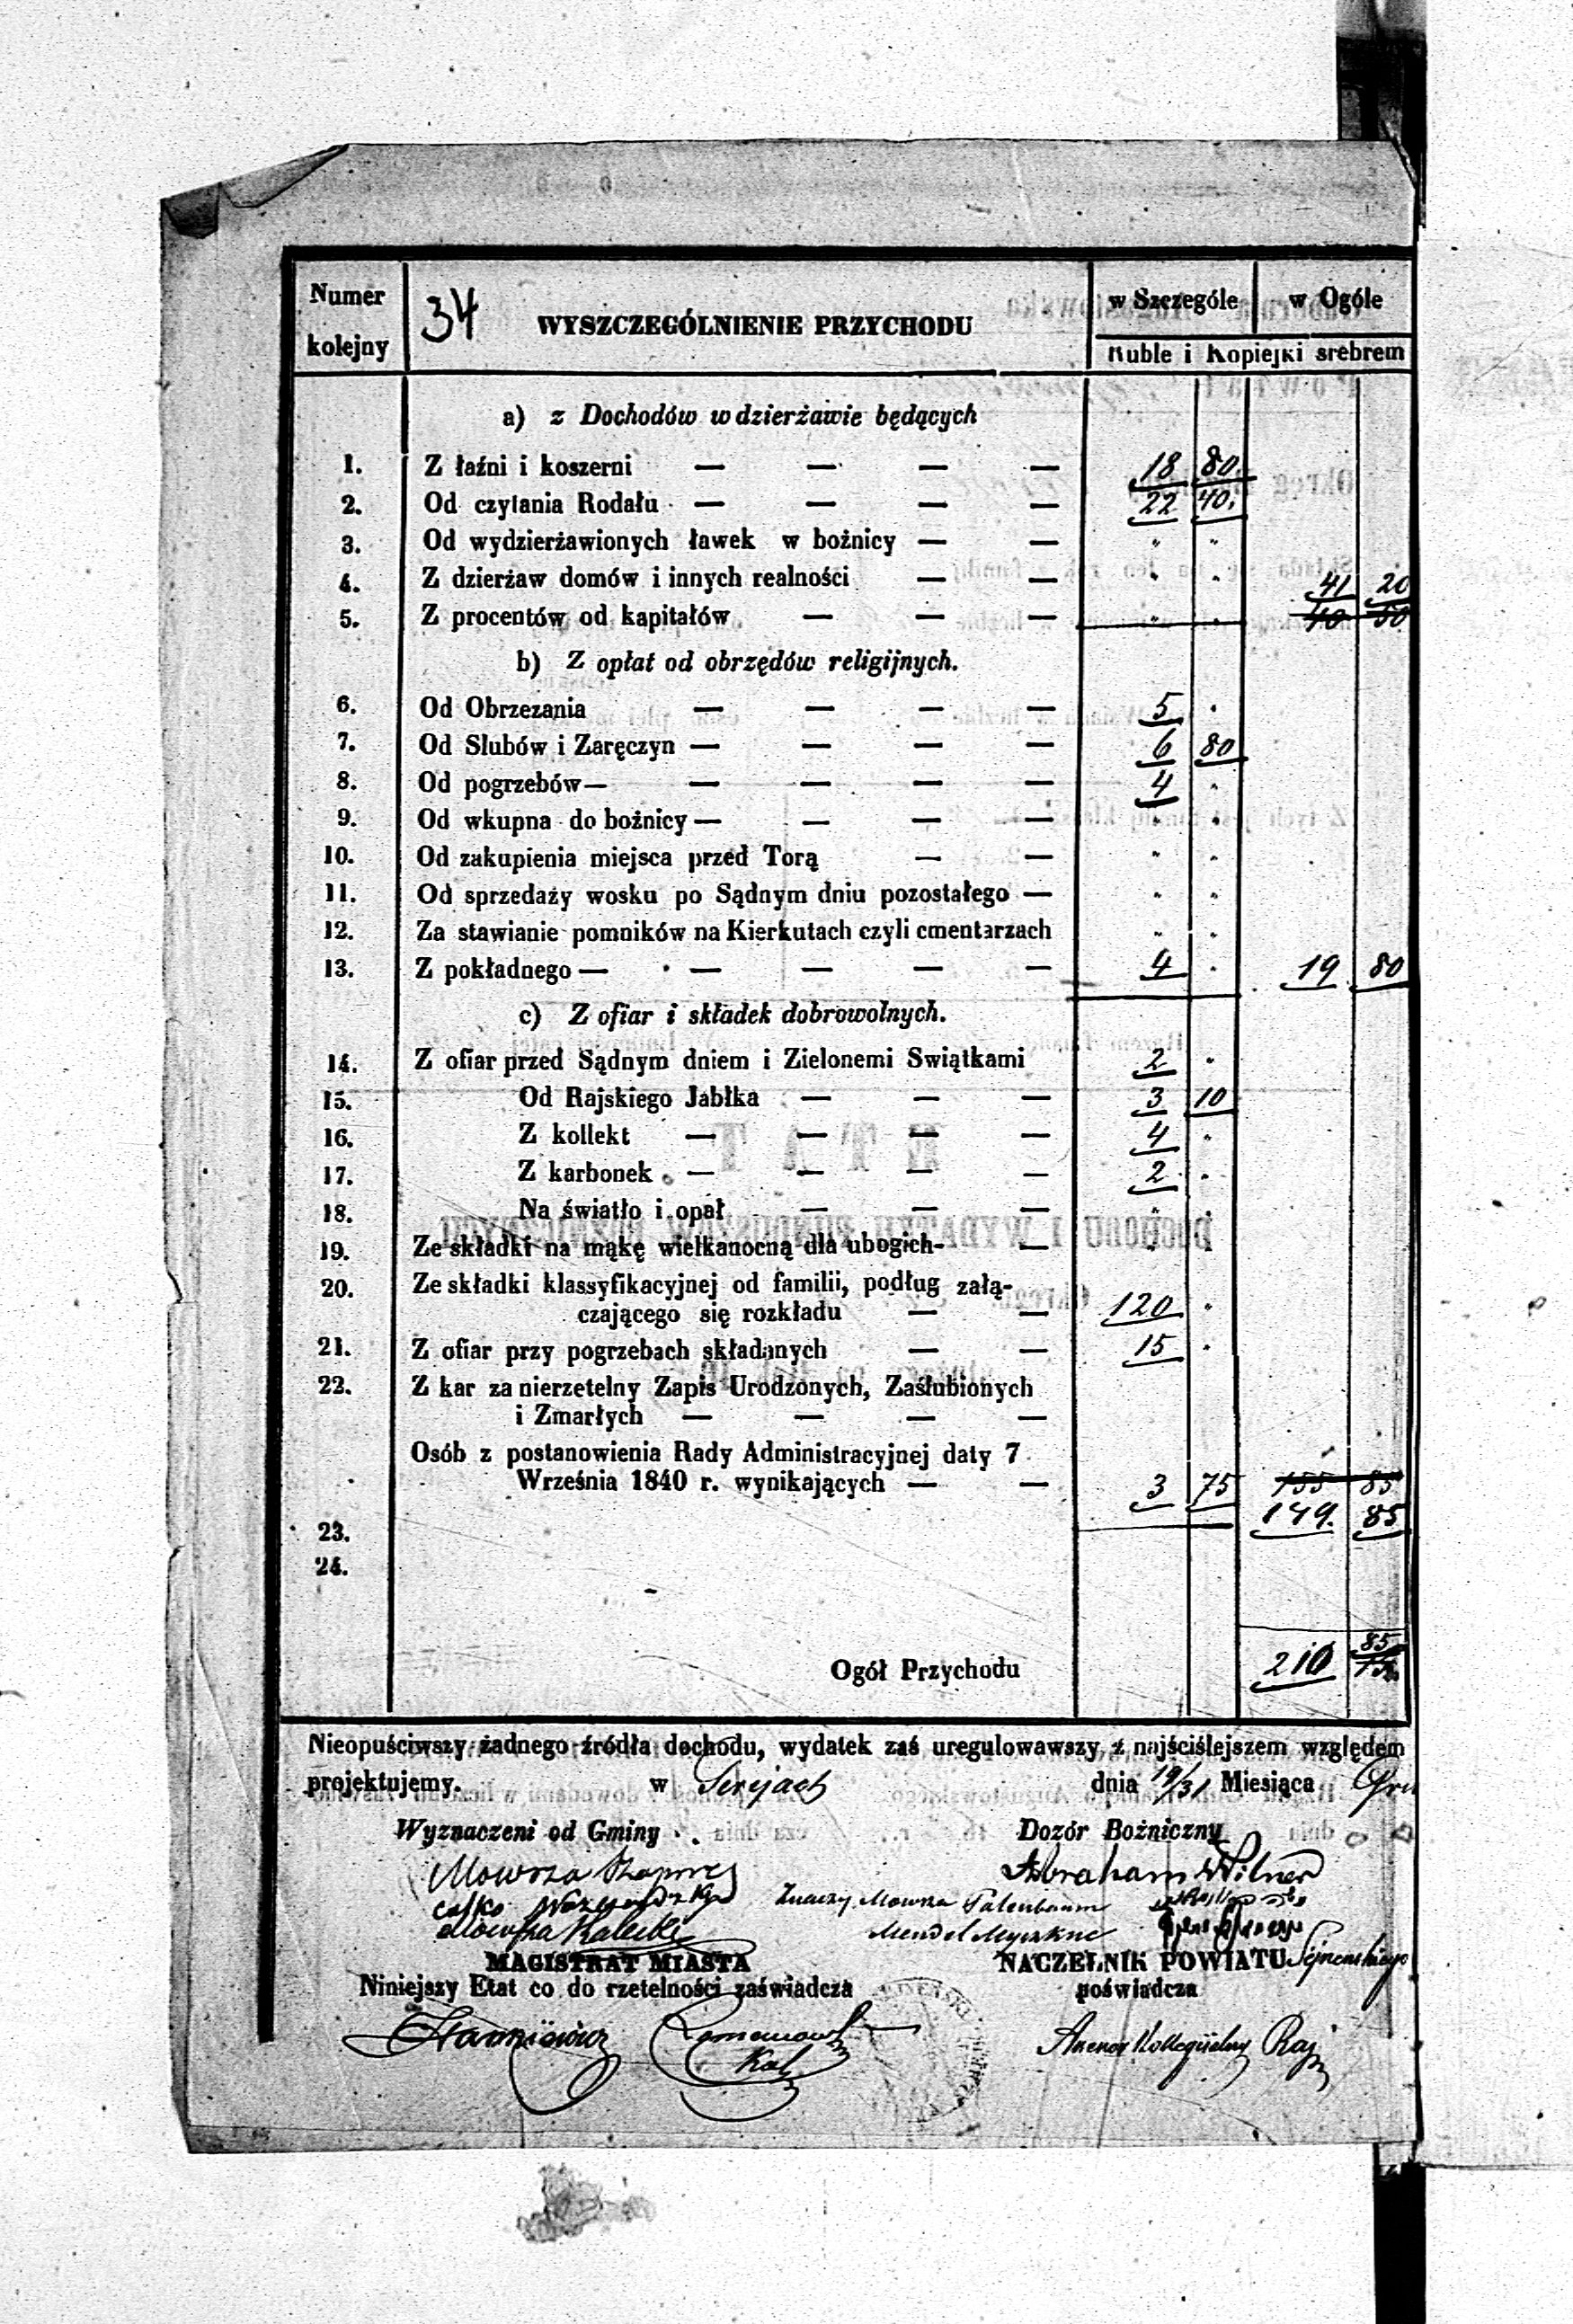 Numer kolejny
34
WYSZCZEGÓLNIENIE PRZYCHODU
w Szczególe w Ogóle
Ruble i Kopiejki srebrem
a) z Dochodów w dzierżawie będących
1. Z łaźni i koszerni — — — — 18 80
2. Od czytania Rodału — — — — 22 40.
3. Od wydzierżawionych ławek w bożnicy — — " "
4. Z dzierżaw domów i innych realności — — " " 41 20
5. Z procentów od kapitałów — — — " " 40 50
b) Z opłat od obrzędów religijnych.
6. Od Obrzezania — — — — 5 "
7. Od Slubów i Zaręczyn — — — — 6 80
8. Od pogrzebów — — — — 4 "
9. Od wkupna do bożnicy — — — — " "
10. Od zakupienia miejsca przed Torą — — " "
11. Od sprzedaży wosku po Sądnym dniu pozostałego — " "
12. Za stawianie pomników na Kierkutach czyli cmentarzach " "
13. Z pokładnego — — — — — 4 " 19 80
c) Z ofiar i składek dobrowolnych.
14. Z ofiar przed Sądnym dniem i Zielonemi Swiątkami 2 "
15. Od Rajskiego Jabłka — — — 3 10
16. Z kollekt — — — — 4 "
17. Z karbonek — — — — 2 "
18. Na światło i opał — — — " "
19. Ze składki na mąkę wielkanocną dla ubogich — — " "
20. Ze składki klassyfikacyjnej od familii, podług załą-
czającego się rozkładu — — 120 "
21. Z ofiar przy pogrzebach składanych — — 15 "
22. Z kar za nierzetelny Zapis Urodzonych, Zaślubionych
i Zmarłych — — — —
Osób z postanowienia Rady Administracyjnej daty 7
Września 1840 r. wynikających — — 3 75 155 85
149. 85
23.
24.
85
Ogół Przychodu 210 15
Nieopuściwszy żadnego źródła dochodu, wydatek zaś uregulowawszy z najściślejszem względem
projektujemy. w Serejach dnia 19/31 Miesiąca Gru
Wyznaczeni od Gminy Dozór Bożniczny
Mowsza Abraham Wilner
Mowsza
Mowsza Mendel
MAGISTRAT MIASTA NACZELNIK POWIATU Sejneńskiego
Niniejszy Etat co do rzetelności zaświadcza poświadcza
Kollegijalny